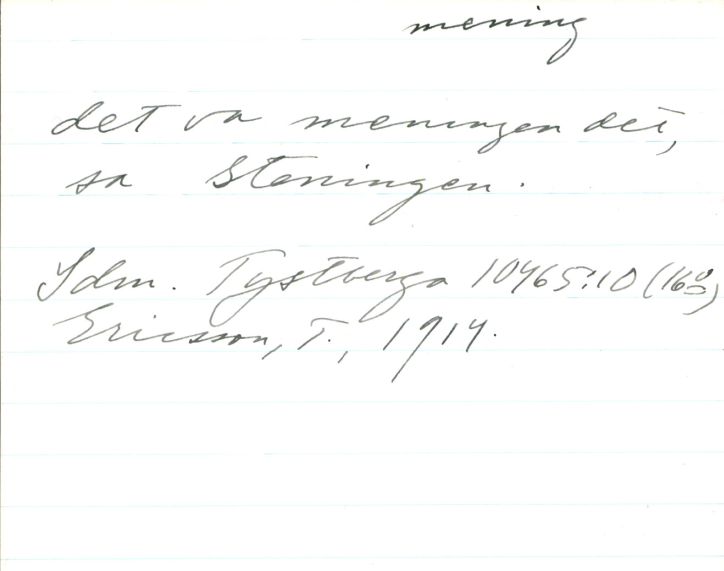 mening
det va meningen det,
sa Steningen.
Sdm. Tystberga 10465:10 (16º)
Ericsson, T., 1914.